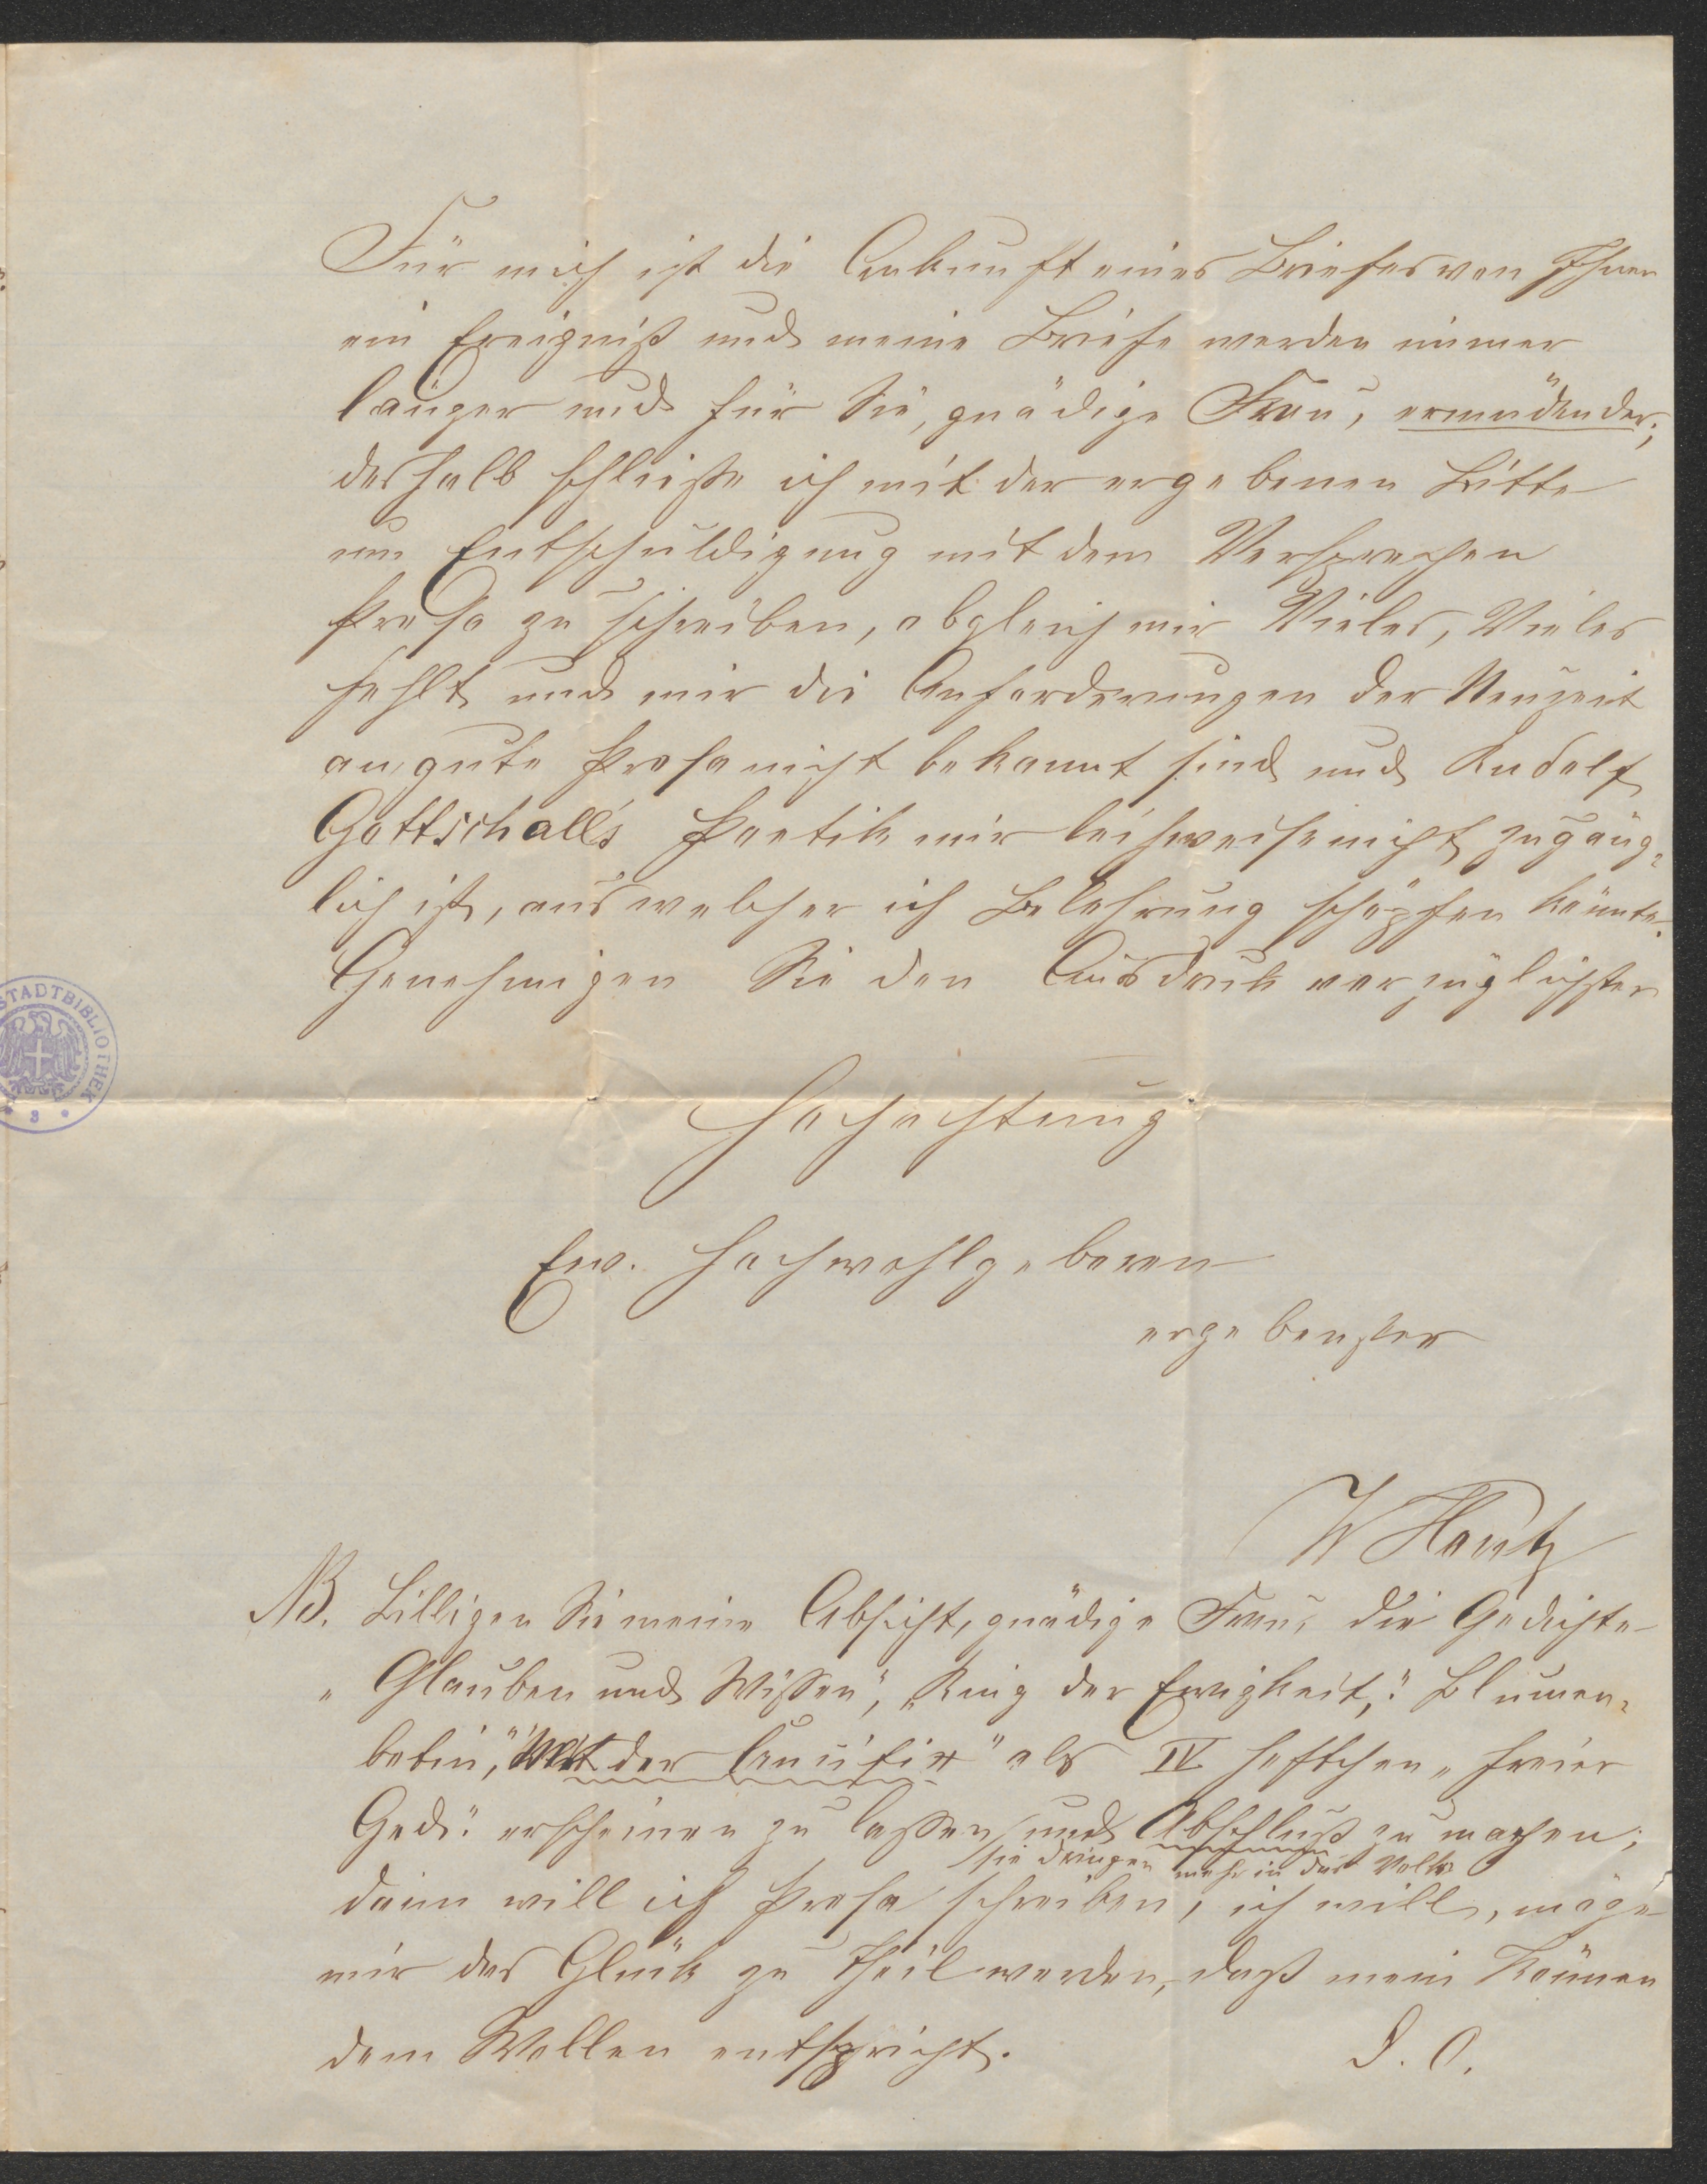 Für mich ist die Ankunft eines Briefes von Ihnen
ein Ereigniß und meine Briefe werden immer
länger und für Sie, gnädige Frau, ermüdender;
deshalb schließe ich mit der ergebenen Bitte
um Entschuldigung mit dem Versprechen
Prosa zu schreiben, obgleich mir Vieles, Vieles
fehlt und mir die Anforderungen der Neuzeit
an gute Prosa nicht bekannt sind und Rudolf
Gottschall's Poetik mir leihweise nicht zugäng=
lich ist, aus welcher ich Belehrung schöpfen könnte.
Genehmigen Sie den Ausdruck vorzüglichster
Hochachtung
Ew. Hochwohlgeboren
ergebenster
W
NB. Billigen Sie meine Absicht, gnädige Frau, die Gedichte
„Glauben und Wissen", „Ring der Ewigkeit," Blumen=
der als IV Heftchen „freier
Ged." erscheinen zu lassen und Abschluß zu machen;
sie dringen mehr in das Volk
dann will ich Prosa schreiben, ich will, möge
mir das Glück zu Theil werden, daß mein Können
dem Wollen entspricht. D. O.
STADTBIBLIOTHEK
3